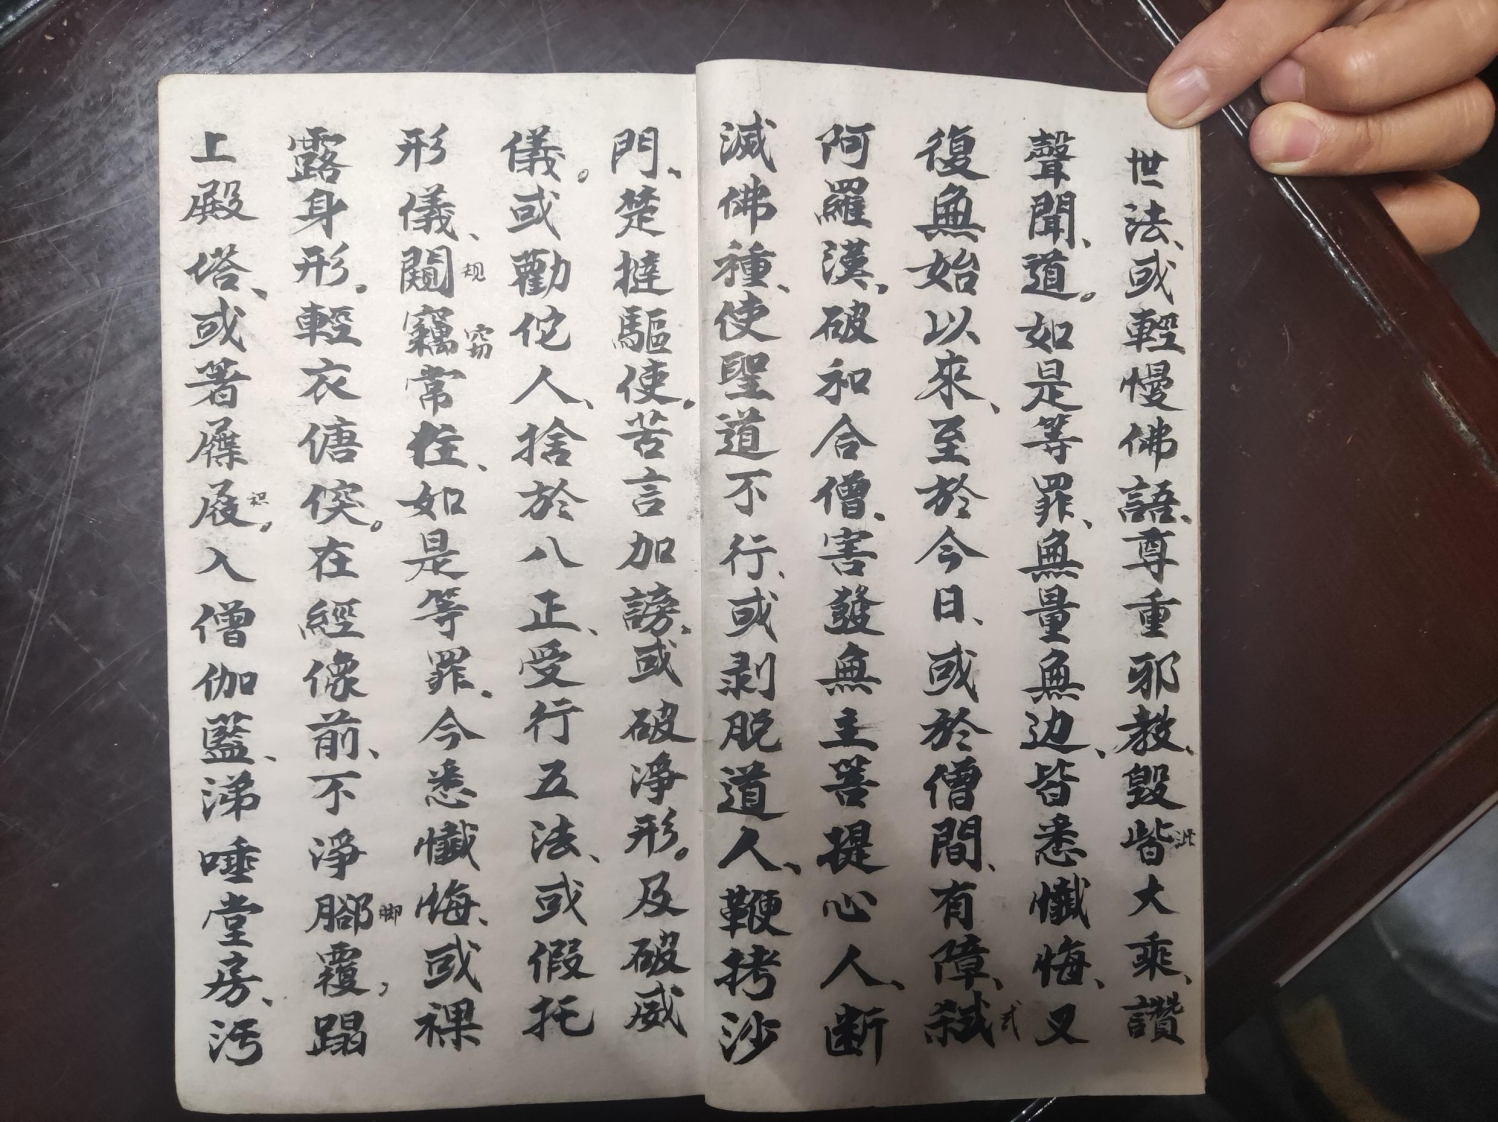 世法、或輕慢佛語、尊重邪教、毀呰大乘、讚
此
聲聞、道。如是等罪、無量無邊、皆悉懺悔、又
復無始以來、至於今日、或於僧間、有障、弒
弍
阿羅漢、破和合僧、害發無主菩提心人、断
滅佛種、使聖道不行、或剥脱道人、鞭拷沙
門、楚撻驅使、苦言加謗、或破淨形。及破威
儀。或勸佗人、捨於八正、受行五法、或假托
形儀、闚竊常住、如是等罪。今悉懺悔、或裸
规
窃
露身形。輕衣傏傸。在經像前、不淨腳覆，蹋
脚
上殿塔、或著屧屐。入僧伽藍、涕唾堂房、污